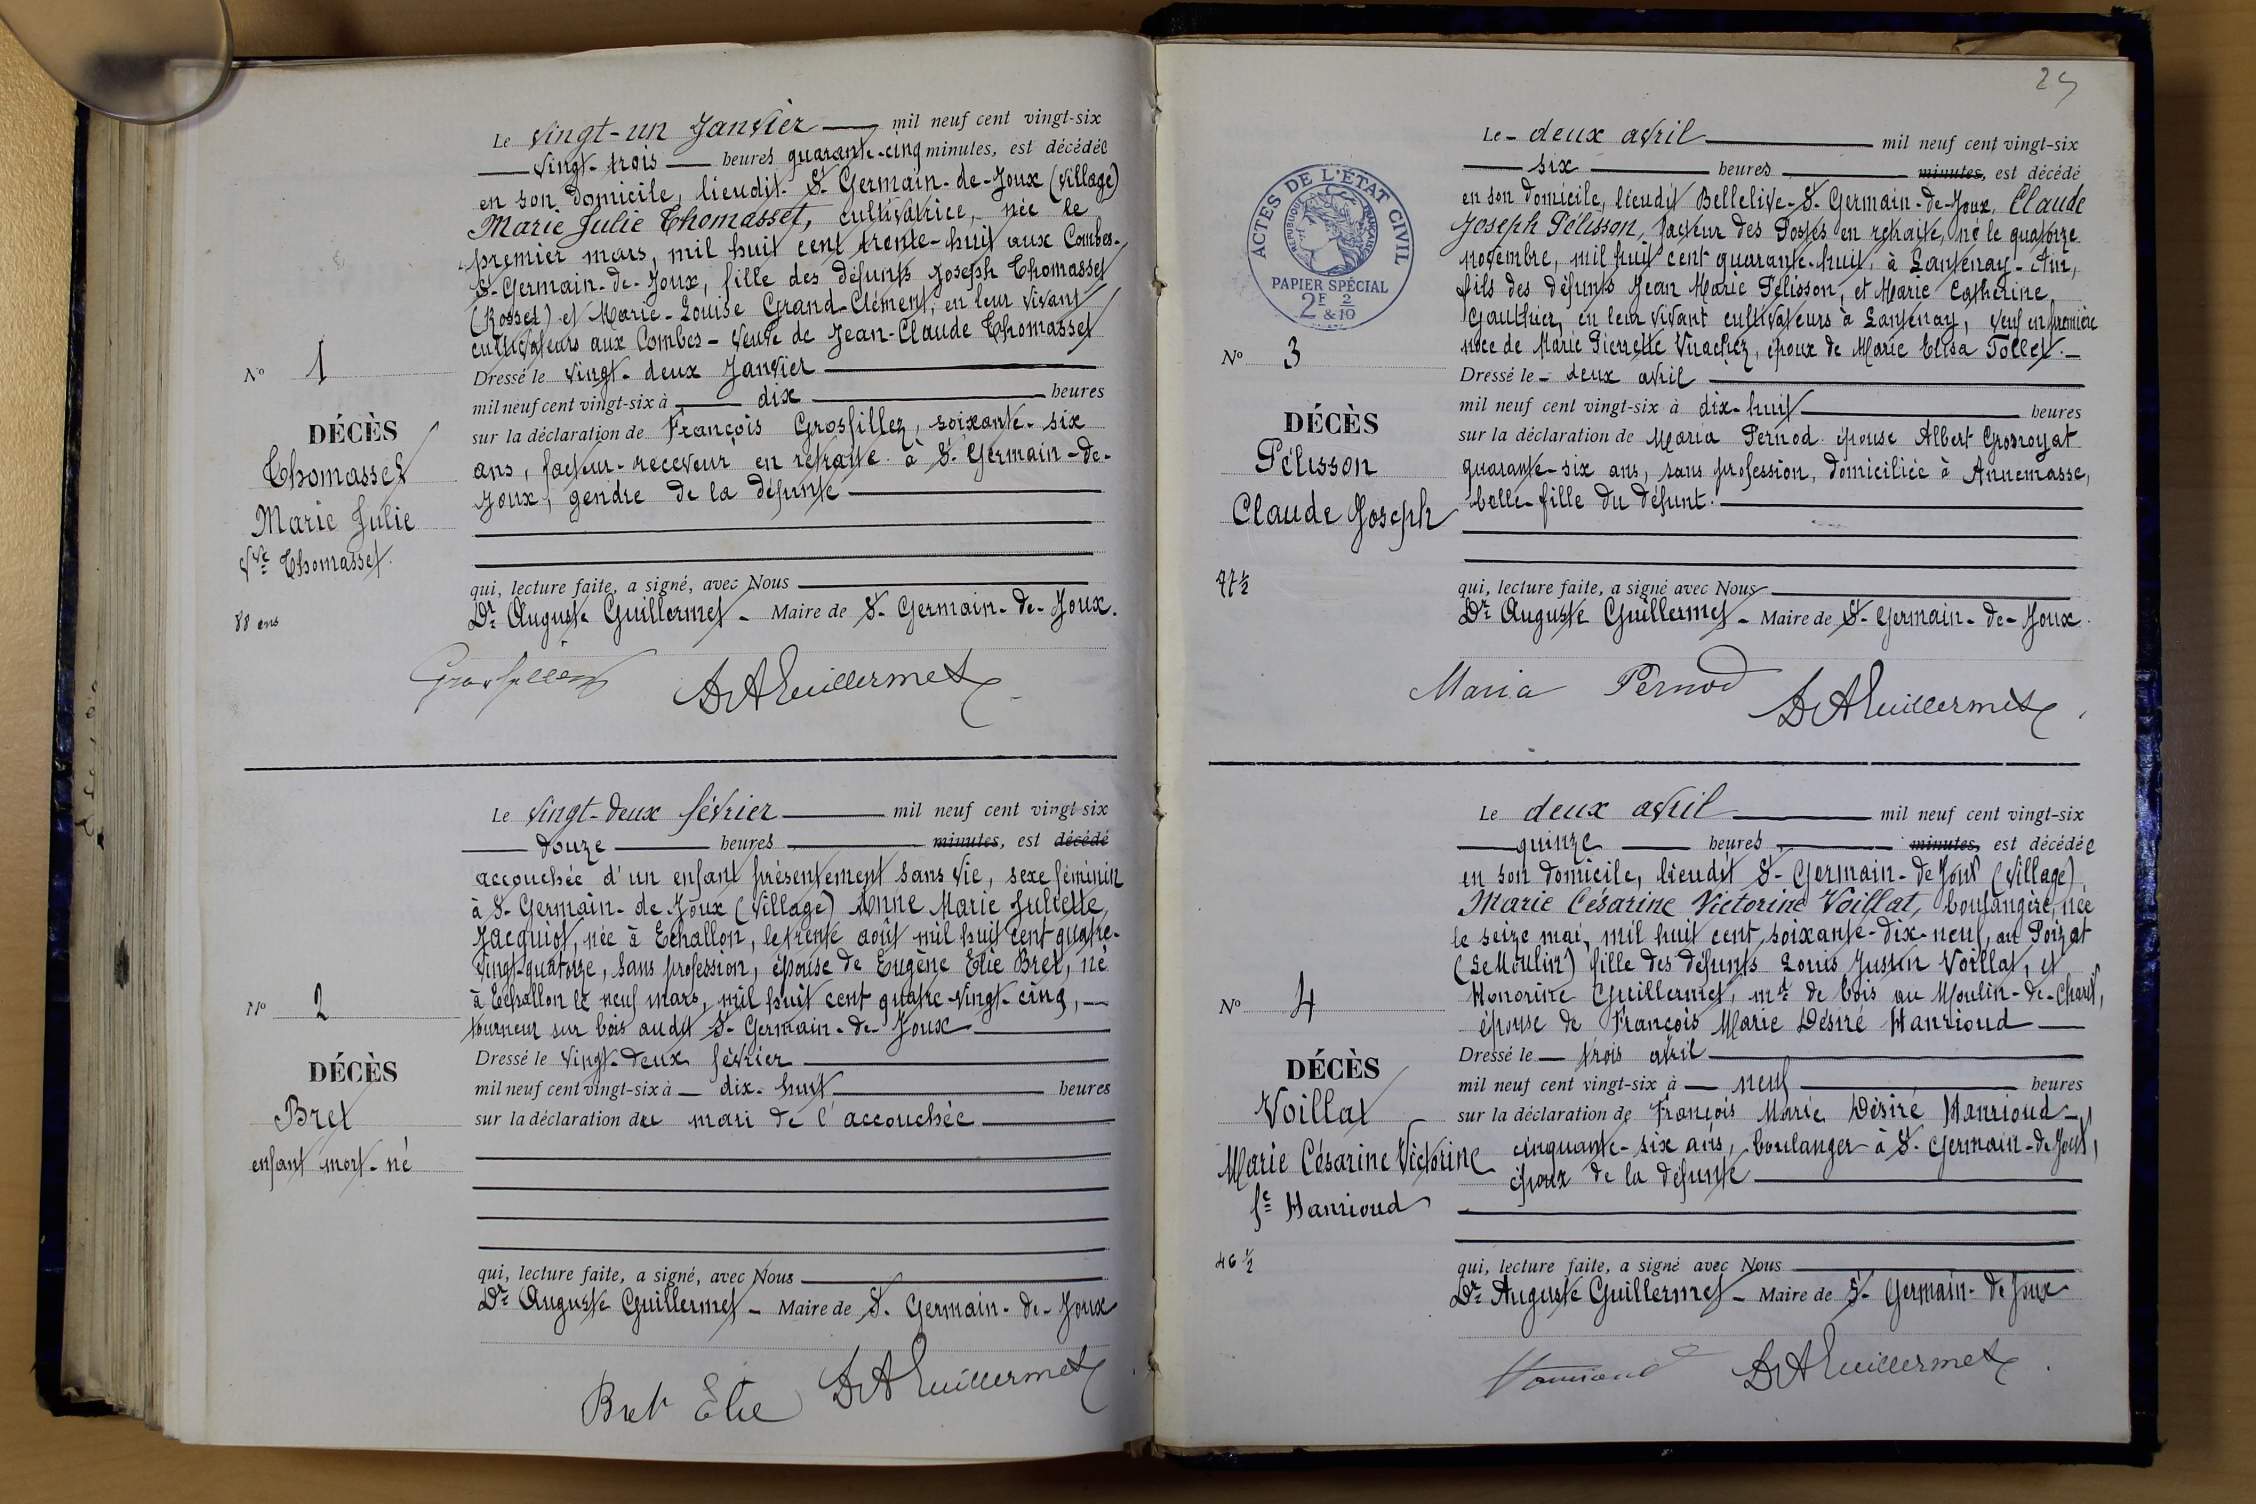 Le vingt-un Janvier mil neuf cent vingt-six
vingt-trois heures quarante-cinq minutes, est décédée
en son domicile, lieudit St Germain-de-Joux (village)
Marie Julie Thomasset, cultivatrice, née le
premier mars, mil huit cent trente-huit aux Combes-
St Germain-de-Joux, fille des défunts Joseph Thomasset
(Rosset) et Marie-Louise Grand-Clément, en leur vivant
cultivateurs aux Combes - veuve de Jean-Claude Thomasset
Dressé le vingt-deux Janvier
mil neuf cent vingt-six à dix heures
sur la déclaration de François Grosfillez, soixante-six
ans, facteur-receveur en retraite à St Germain-de-
Joux, gendre de la défunte
qui, lecture faite, a signé, avec Nous
Dr Auguste Guillermet - Maire de St Germain-de-Joux.
Grosfillez DrAGuillermet
No 1
DÉCÈS
Thomasset
Marie Julie
Vve Thomasset
88 ans
Le vingt-deux février mil neuf cent vingt-six
douze heures minutes, est décédé
accouchée d'un enfant présentement sans vie, sexe féminin
à St Germain-de Joux (village) Anne Marie Juliette
Jacquiot, née à Echallon, le trente août mil huit cent quatre-
vingt-quatorze, sans profession, épouse de Eugène Elie Bret, né
à Echallon le neuf mars, mil huit cent quatre-vingt-cinq,
tourneur sur bois audit St Germain-de-Joux
Dressé le vingt-deux février
mil neuf cent vingt-six à dix-huit heures
sur la déclaration du mari de l'accouchée
qui, lecture faite, a signé, avec Nous
Dr Auguste Guillermet - Maire de St Germain-de-Joux
Bret Elie DrAGuillermet
No 2
DÉCÈS
Bret
enfant mort-né
25
Le deux avril mil neuf cent vingt-six
six heures minutes, est décédé
en son domicile, lieudit Bellelive-St Germain-de-Joux, Claude
Joseph Pélisson, facteur des Postes en retraite, né le quatorze
novembre, mil huit cent quarante-huit, à Lantenay-Ain,
fils des défunts Jean Marie Pélisson, et Marie Catherine
Gauthier, en leur vivant cultivateurs à Lantenay, veuf en première
noce de Marie Pierrette Vuachez, époux de Marie Elisa Tollet.
Dressé le deux avril
mil neuf cent vingt-six à dix-huit heures
sur la déclaration de Maria Pernod épouse Albert Grosroyat
quarante-six ans, sans profession, domiciliée à Annemasse,
belle-fille du défunt.
qui, lecture faite, a signé avec Nous
Dr Auguste Guillermet - Maire de St Germain-de-Joux.
Maria Pernod DrAGuillermet
ACTES DE L'ÉTAT CIVIL
RÉPUBLIQUE FRANÇAISE
PAPIER SPÉCIAL
2F & 2/10
No 3
DÉCÈS
Pélisson
Claude Joseph
77 1/2
Le deux avril mil neuf cent vingt-six
quinze heures minutes, est décédée
en son domicile, lieudit St Germain-de Joux (village)
Marie Césarine Victorine Voillat, boulangère, née
le seize mai, mil huit cent soixante-dix-neuf, au Poizat
(Le Moulin) fille des défunts Louis Justin Voillat, et
Honorine Guillermet, md de bois au Moulin-de-Charix,
épouse de François Marie Désiré Hanrioud
Dressé le trois avril
mil neuf cent vingt-six à neuf heures
sur la déclaration de François Marie Désiré Hanrioud
cinquante-six ans, boulanger à St Germain-de Joux,
époux de la défunte
qui, lecture faite, a signé avec Nous
Dr Auguste Guillermet - Maire de St Germain-de Joux
Hanrioud DrAGuillermet
No 4
DÉCÈS
Voillat
Marie Césarine Victorine
fe Hanrioud
46 1/2